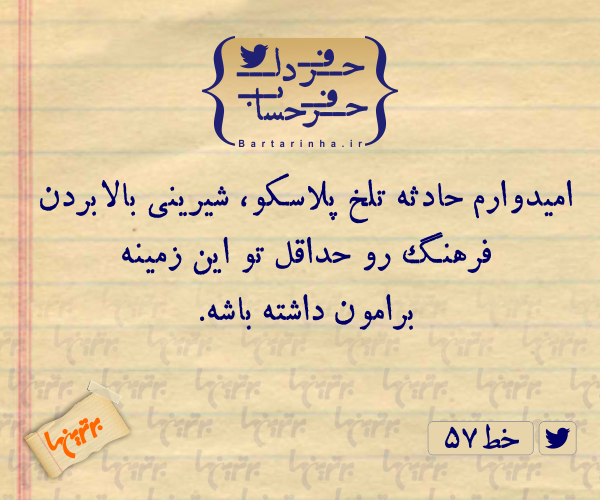 حرف دل
حرف حساب
Bartarinha.ir
امیدوارم حادثه تلخ پلاسکو، شیرینی بالابردن
فرهنگ رو حداقل تو این زمینه
برامون داشته باشه.
برترین‌ها
خط ۵۷